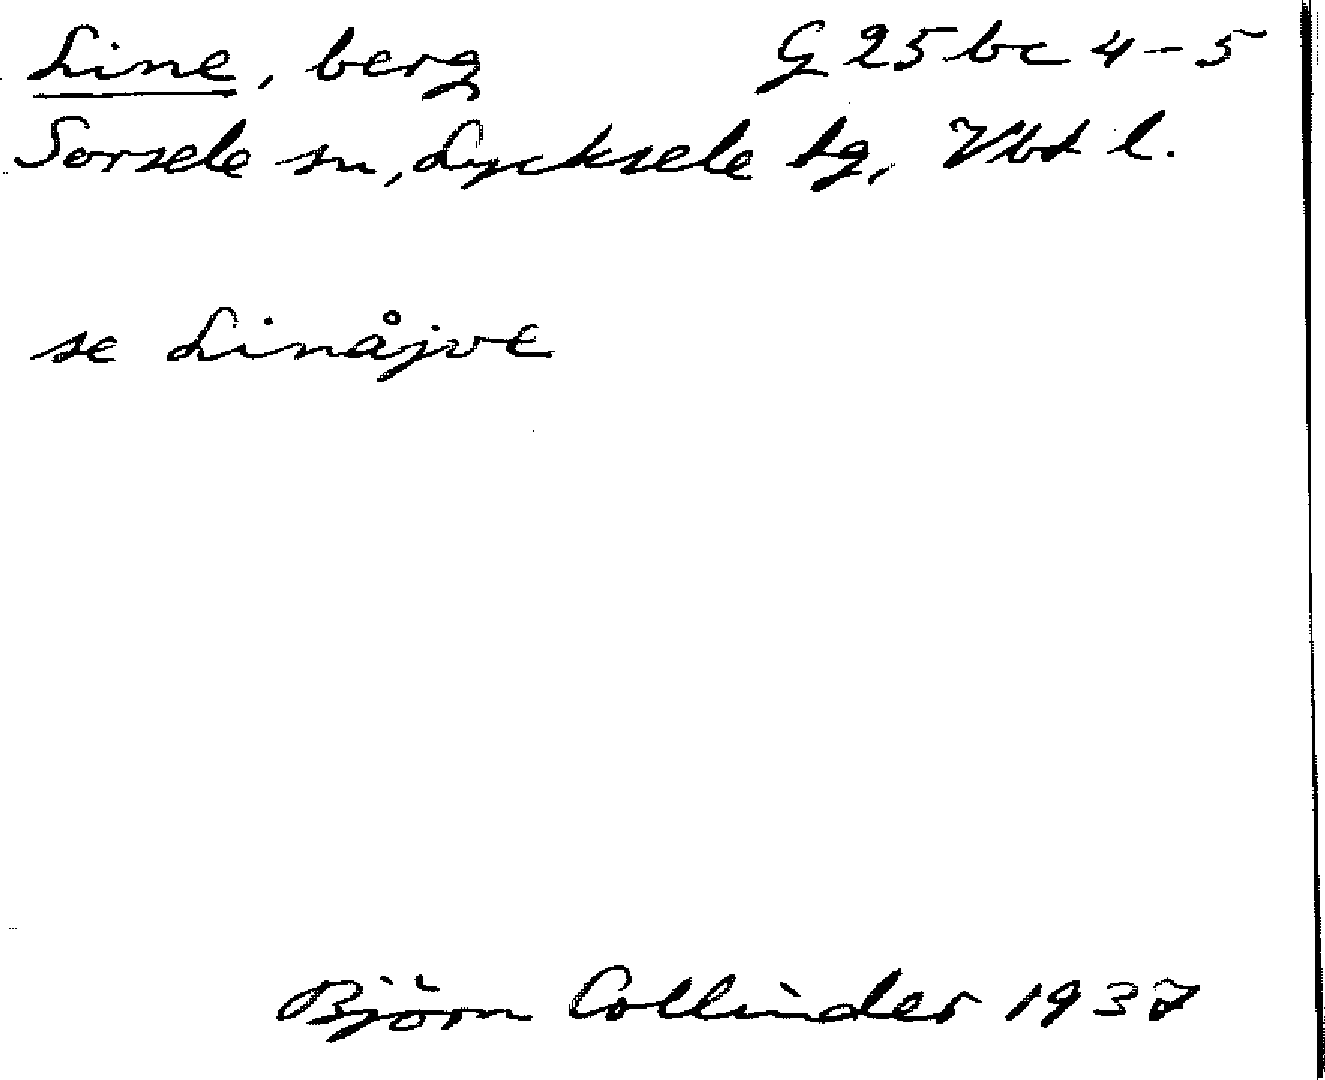 Line, berg G 25 bc 4-5
Sorsele sn, Lycksele tg, Vbt l.
se Linåjve
Björn Collinder 1937